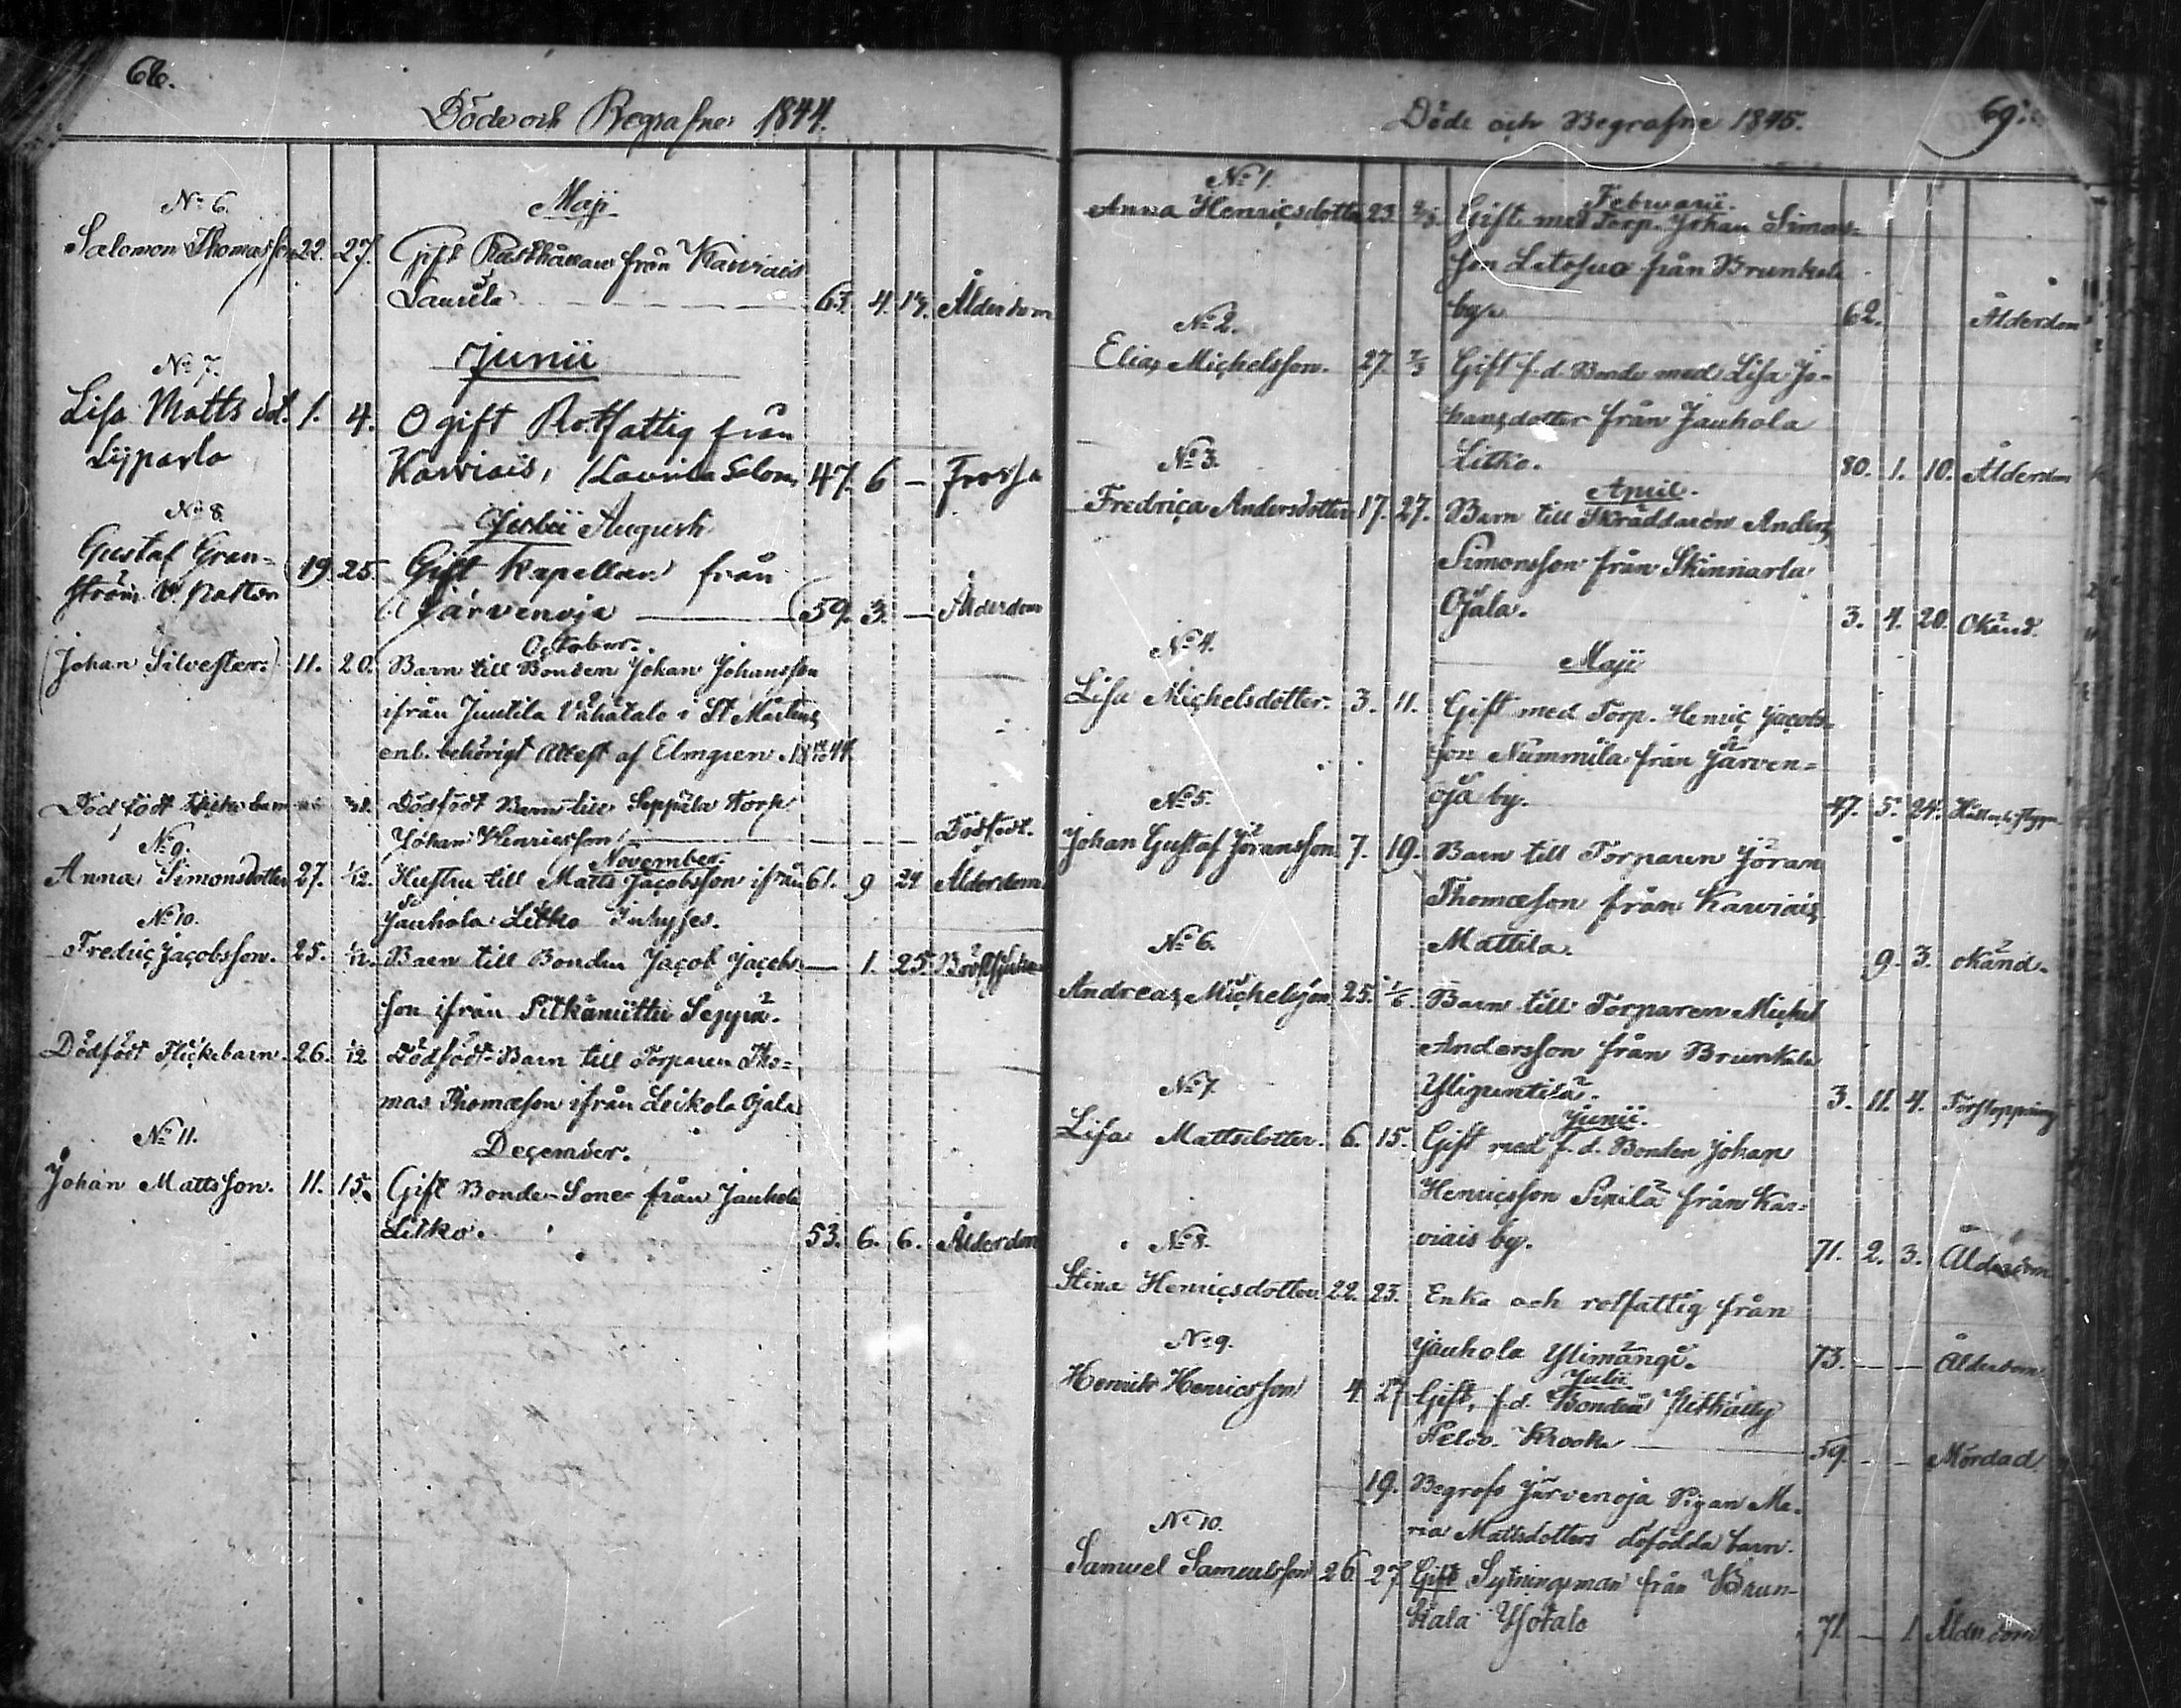 66.
Döde och Begrafne 1844.
Maji
No 6.
Salomon Thomasson 22. 27. Gift Rusthållare från Karviais
Laurila 63. 4. Ålderdom
Junii
No 7.
Lisa Matts dot. 1. 4. Ogift Rotfattig från
Karviais, Laurila 47. 6 —
No 8.
Augusti
Gustaf Gran-
ström 19. 25. Gift Kapellan från
Järvenoja 59. 3. — Ålderdom
October.
(Johan Silvester.) 11. 20. Barn till Bonden Johan Johansson
ifrån Juutila Vähätalo i St Mårtens
enl. behörigt Attest af Elmgren
Dödfödt Barn till Seppälä Torp.
Johan Henricsson Dödfödt.
No 9.
November.
Anna Simonsdotter 27. 1/12. Hustru till Matts Jacobsson ifrån 61. 9 24 Ålderdom
Jauhola Litko Inhyses.
No 10.
Fredric Jacobsson. 25. 1/12. Barn till Bonden Jacob Jacobs — 1. 25. Bröstsjuka
son ifrån Pitkäniittu Seppä.
Dödfödt Flickebarn. 26. 1/12 Dödfödt Barn till Torparen Tho-
mas Thomæson ifrån Leikola Ojala
No 11.
December.
Johan Mattsson. 11. 15. Gift Bonde-Sone från Jauhola
Litko. 53. 6. 6. Ålderdom
Döde och Begrafne 1845.
69.
No 1.
Februarii.
Anna Henricsdotter 23. 2/3. Gift med Torp. Johan Simons-
son Letosuo från Brunkala
by. 62. Ålderdom
No 2.
Elias Michelsson. 27. 2/3 Gift f.d. Bonde med Lisa Jo-
hansdotter från Jauhola
Litko. 80. 1. 10. Ålderdom
No 3.
April.
Fredrica Andersdotter 17. 27. Barn till Skräddaren Anders
Simonsson från Skinnarla
Ojala. 3. 4. 20. Okänd.
No 4.
Maji
Lisa Michelsdotter. 3. 11. Gift med Torp. Henric Jacobs-
son Nummila från Järven-
oja by. 47. 5. 24.
No 5.
Johan Gustaf Jöransson 7. 19. Barn till Torparen Jöran
Thomæson från Karviais
Mattila. 9. 3. okänd.
No 6.
Andreas Michelsson 25. 1/6. Barn till Torparen Michel
Andersson från Brunkala
Ylipentilä. 3. 11. 4. Förstoppning
No 7.
Junii.
Lisa Mattsdotter. 6. 15. Gift med f.d. Bonden Johan
Henricsson Sipilä från Kar-
viais by. 71. 2. 3. Ålderdom
No 8.
Stina Henricsdotter 22. 23. Enka och rotfattig från
Jauhola Ylimängö. 73. — — Ålderdom
No 9.
Julii.
Henrik Henricsson 4. 27 Gift, f.d. Bonden
Krook 59. — — Mördad
19. Begrofs Järvenoja Pigan Ma-
ria Mattsdotters döfödda barn.
No 10.
Samuel Samuelsson 26 27 Gift Sytningsman från Brun-
kala Ysotalo 71. — 1 Ålderdom